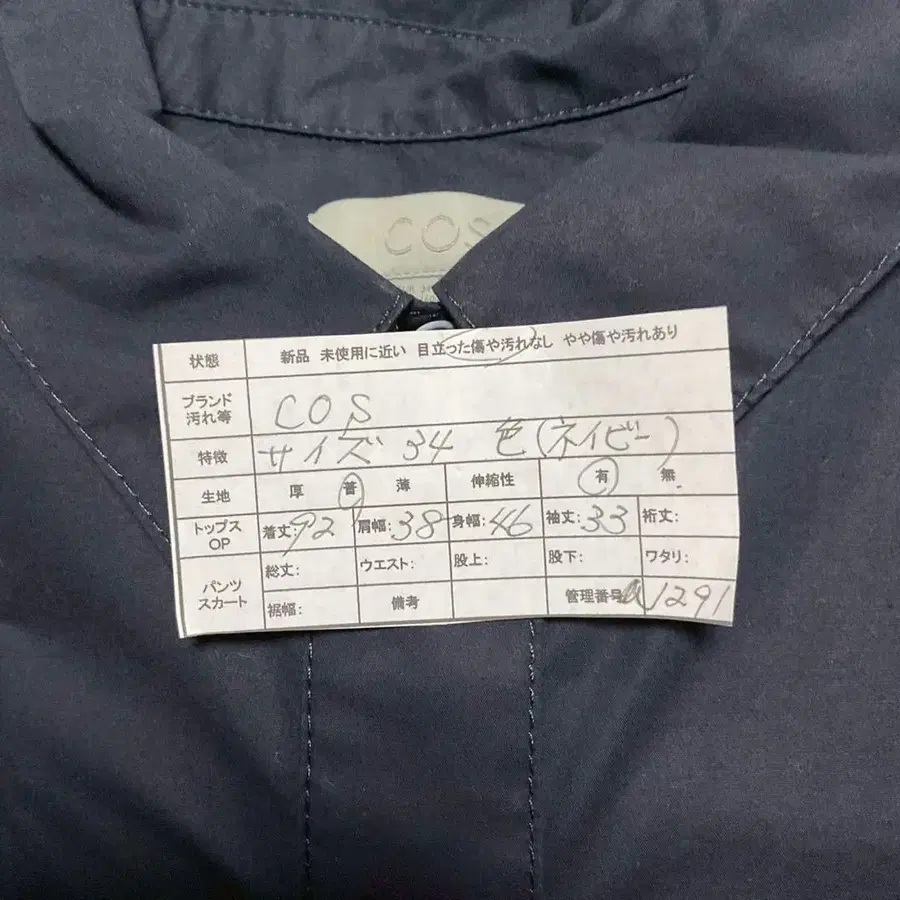 COS
状態 新品 未使用に近い 目立った傷や汚れなし やや傷や汚れあり
ブランド 汚れ等 COS
特徴 サイズ 34 色(ネイビー)
生地 厚 普 薄 伸縮性 有 無
トップス OP 着丈:92 肩幅:38 身幅:46 袖丈:33 裄丈:
パンツ スカート 総丈: ウエスト: 股上: 股下: ワタリ:
裾幅: 備考 管理番号 a1291